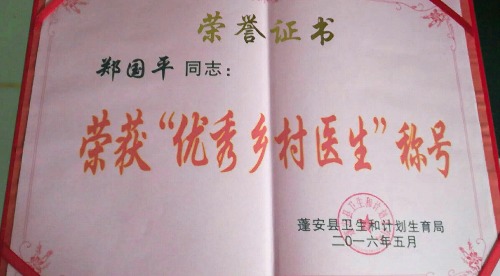 荣誉证书
郑国平 同志：
荣获“优秀乡村医生”称号
蓬安县卫生和计划生育局
二〇一六年五月